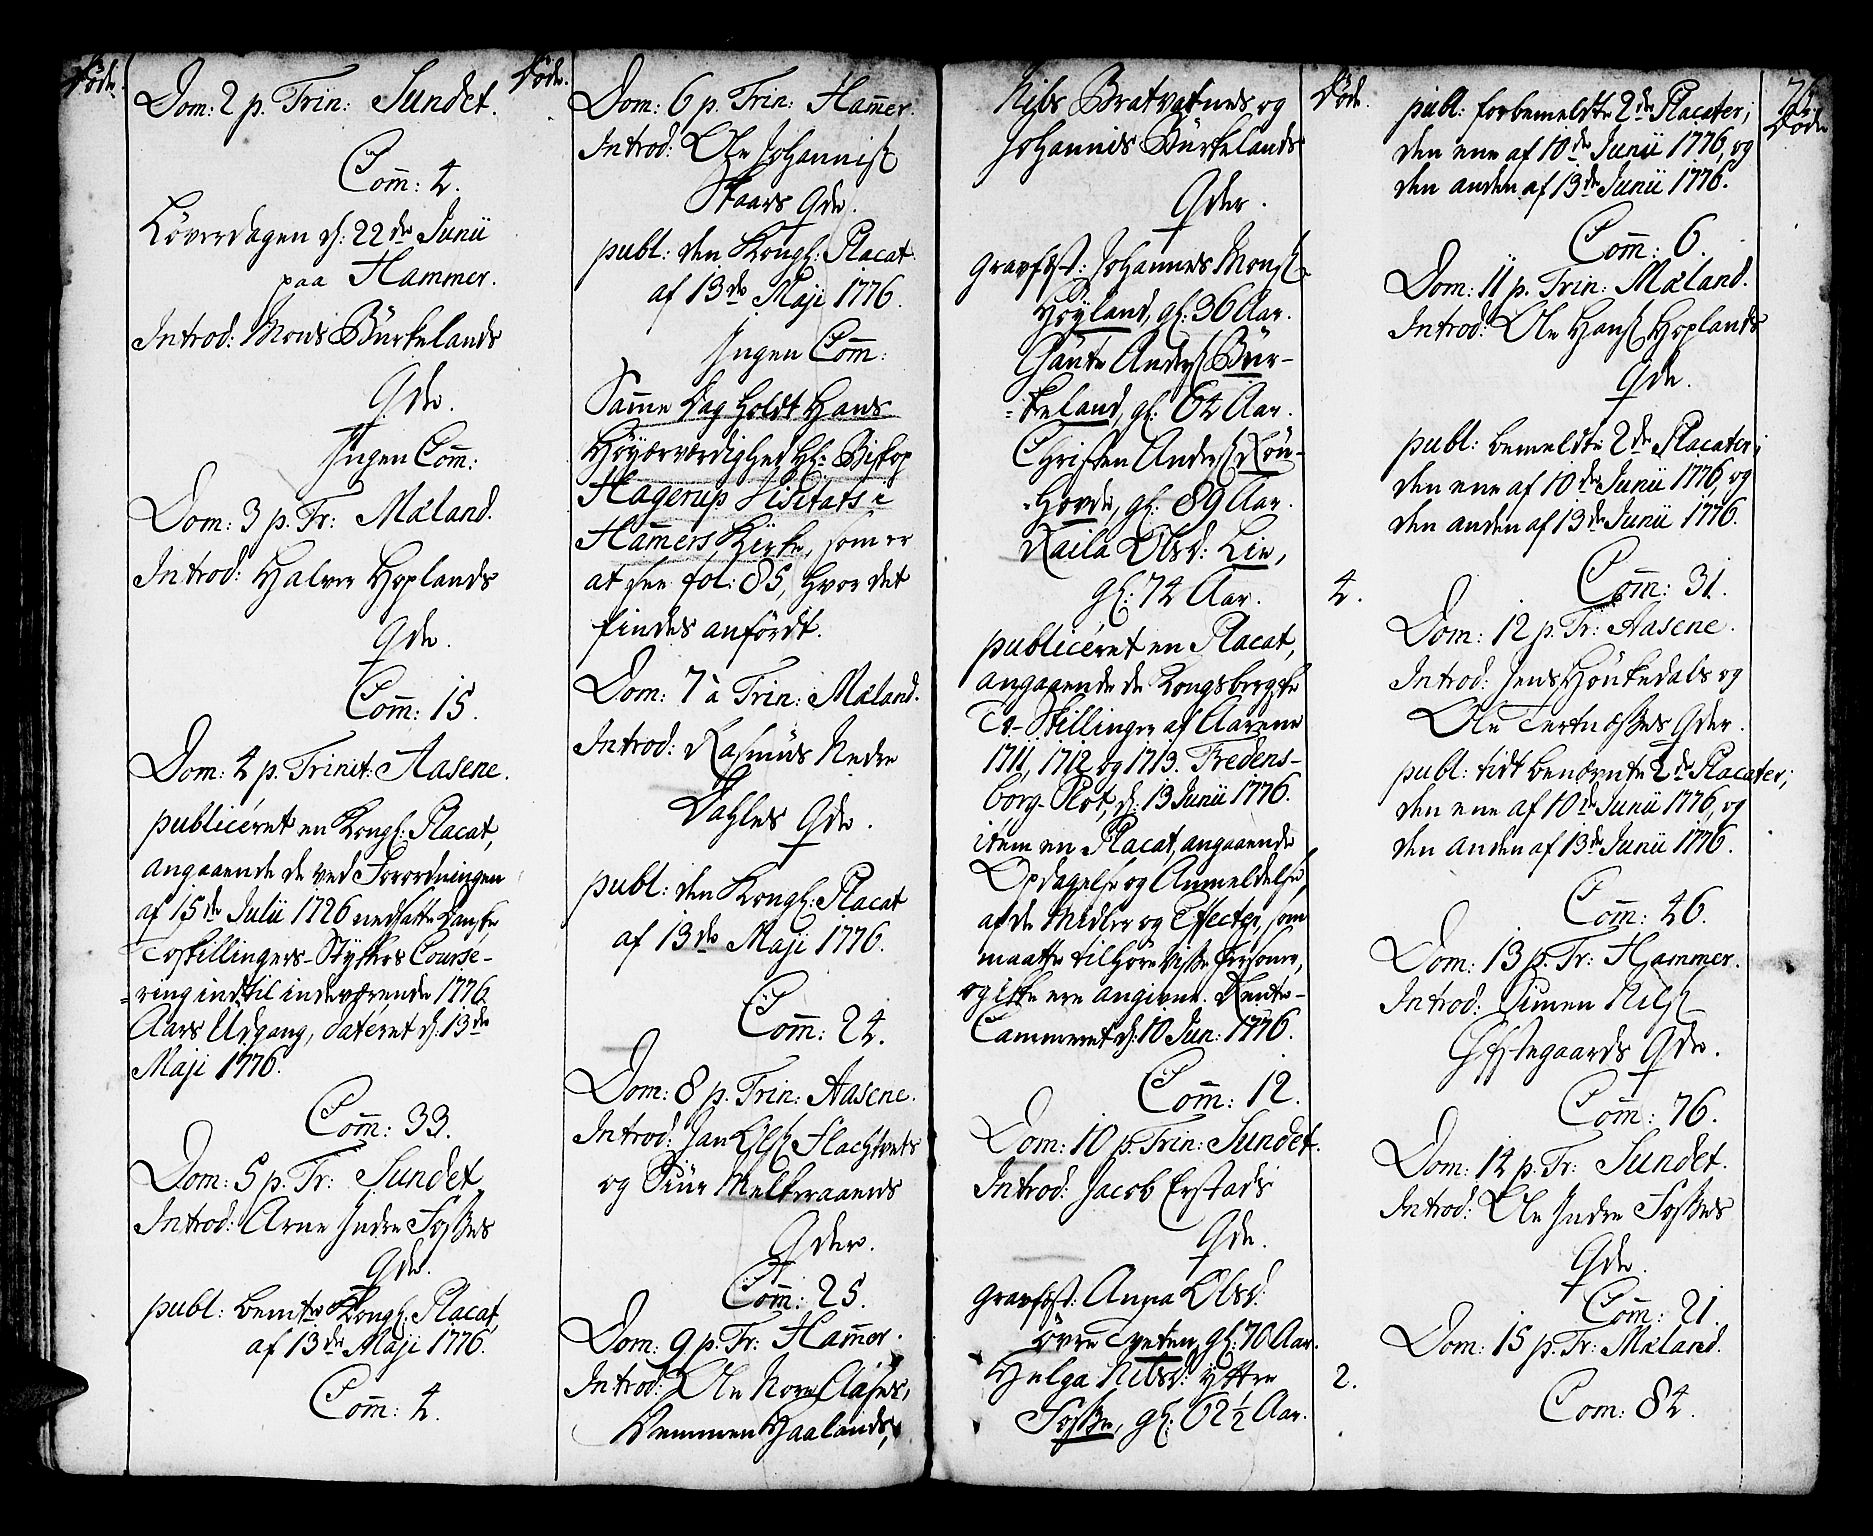 Døde.
Dom: 2 p. Trin: Sundet.
Com̅: 4.
Løverdagen d: 22de Junii
paa Hammer.
Introd: Mons Bürkelands
Qde.
Ingen Com̅:
Dom: 3 p. Tr: Mæland.
Introd: Halvor Hoplands
Qde.
Com̅: 15.
Dom: 4 p. Trinit: Aasene.
publicéret en Kongl: Placat,
angaaende de ved Forordningen
af 15de Julii 1726 nedsatte Danske
Toskillingers-Stÿkkers Course-
=ring indtil indeværende 1776
Aars Udgang, datéret d: 13de
Maji 1776.
Com̅: 33.
Dom: 5 p. Tr: Sundet
Introd: Arne Indre Fosses
Qde.
publ: bemte Kongl: Placat
af 13de Maji 1776.
Com̅: 4.
Døde.
Dom: 6 p. Trin: Ham̅er.
Introd: Ole Johanniss
Skaars Qde.
publ: den Kongl: Placat
af 13de Maji 1776.
Ingen Com̅:
Sam̅e Dag holdt Hans
Höÿærværdighed Hr: Biskop
Hagerup Visitats i
Ham̅ers Kirke, som er
at see fol: 85, hvor det
findes anfördt.
Dom: 7 à Trin: Mæland.
Introd: Rasmus Nedre
Dahles Qde.
publ: den Kongl: Placat
af 13de Maji 1776.
Com̅: 24.
Dom: 8 p. Trin: Aasene.
Introd: Jan Ols Flachtvets
og Siur Melkeraaens
Qder.
Com̅: 25.
Dom: 9 p. Tr: Ham̅er.
Introd: Ole Nore Aases,
Vemmen Haalands,
Nils Bratvatnes og
Johannis Bürkelands
Qder.
gravfæst: Johannes Mons
Höÿland, gl: 36 Aar.
Gaute Anders Bür-
=keland, gl: 64 Aar.
Christen Anders Röu-
=hovde, gl: 89 Aar.
Raila Olsd: Lie,
gl: 74 Aar.
Døde.
4.
publicéret en Placat,
angaaende de Kongsbergske
To-Skillinger af Aarene
1711, 1712 og 1713. Fredens-
borg-Slot, d: 13 Junii 1776.
item en Placat, angaaende
Opdagelse og Anmeldelse
af de Midler og Effecter, som
maatte tilhøre visse Personer,
og ikke ere angivne. Rente-
Cammeret d: 10 Jun: 1776.
Com̅: 12.
Dom: 10 p. Trin: Sundet.
Introd: Jacob Erstads
Qde.
gravfæst: Anna Olsd:
Övre Tveten, gl: 70 Aar.
Helga Nilsd: ÿttre
Fosse, gl: 62½ Aar.
2.
publ: forbemeldte 2de Placater;
den ene af 10de Junii 1776, og
den anden af 13de Junii 1776.
Com̅: 6.
Dom: 11 p. Trin: Mæland.
Introd: Ole Hans Hoplands
Qde.
publ: bemeldte 2de Placater;
den ene af 10de Junii 1776, og
den anden af 13de Junii 1776.
Com̅: 31.
Dom: 12 p. Tr: Aasene.
Introd: Jens Höukedals og
Ole Tertnesses Qder.
publ: tidt benævnte 2de Placater;
den ene af 10de Junii 1776, og
den anden af 13de Junii 1776.
Com̅: 46.
Dom: 13 p. Tr: Hammer.
Introd: Simen Nils
Giestegaards Qde.
Com̅: 76.
Dom: 14 p. Tr: Sundet.
Introd: Ole Indre Fosses
Qde.
Com̅: 21.
Dom: 15 p. Tr: Mæland.
Com: 84.
Døde